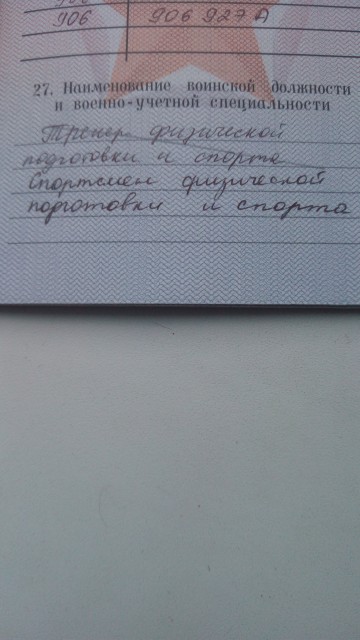 906 906 927 А
27. Наименование воинской должности
и военно-учетной специальности
Тренер физической
подготовки и спорта
Спортсмен физической
подготовки и спорта